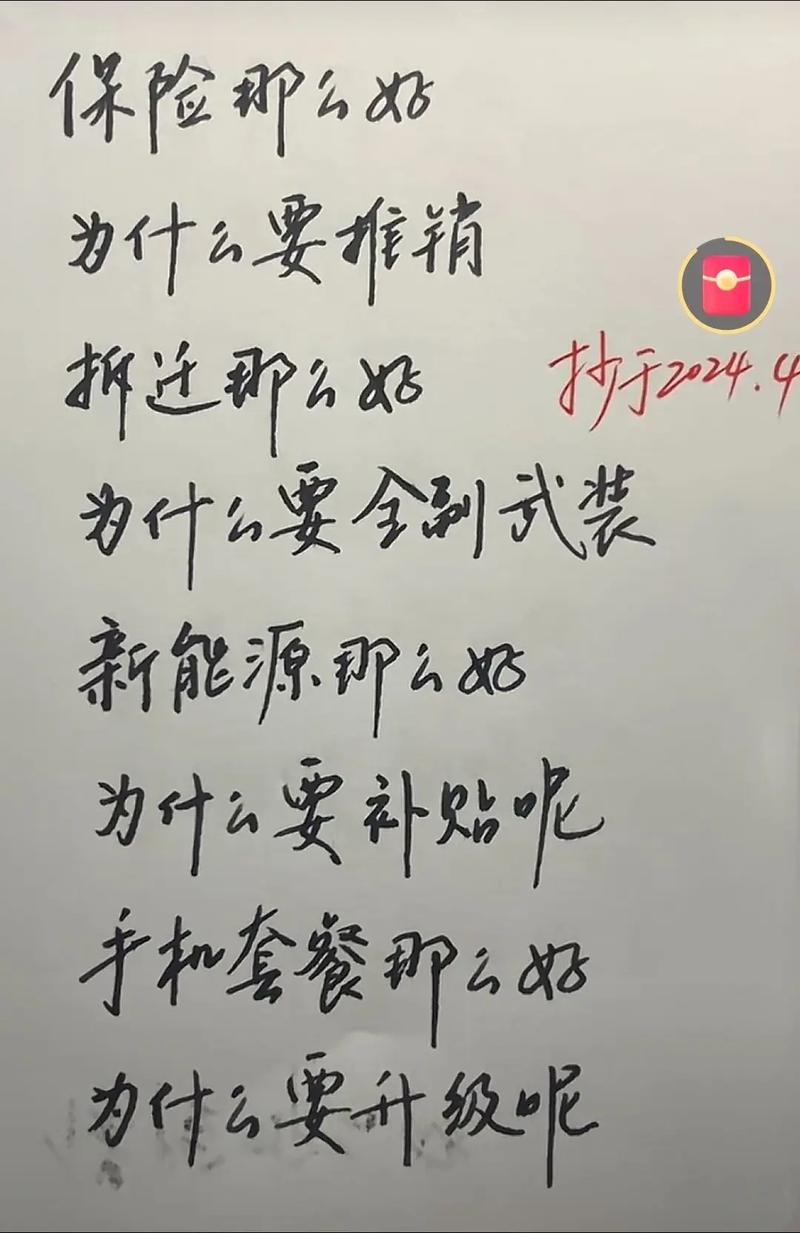 保险那么好
为什么要推销
拆迁那么好
抄于2024.4
为什么要全副武装
新能源那么好
为什么要补贴呢
手机套餐那么好
为什么要升级呢